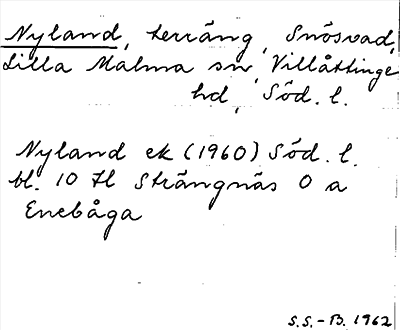 Nyland, terräng, Snösvad,
Lilla Malma sn, Villåttinge
hd, Söd. l.
Nyland ek (1960) Söd. l.
bl. 10 Il Strängnäs O a
Enebåga
S.S.-B. 1962